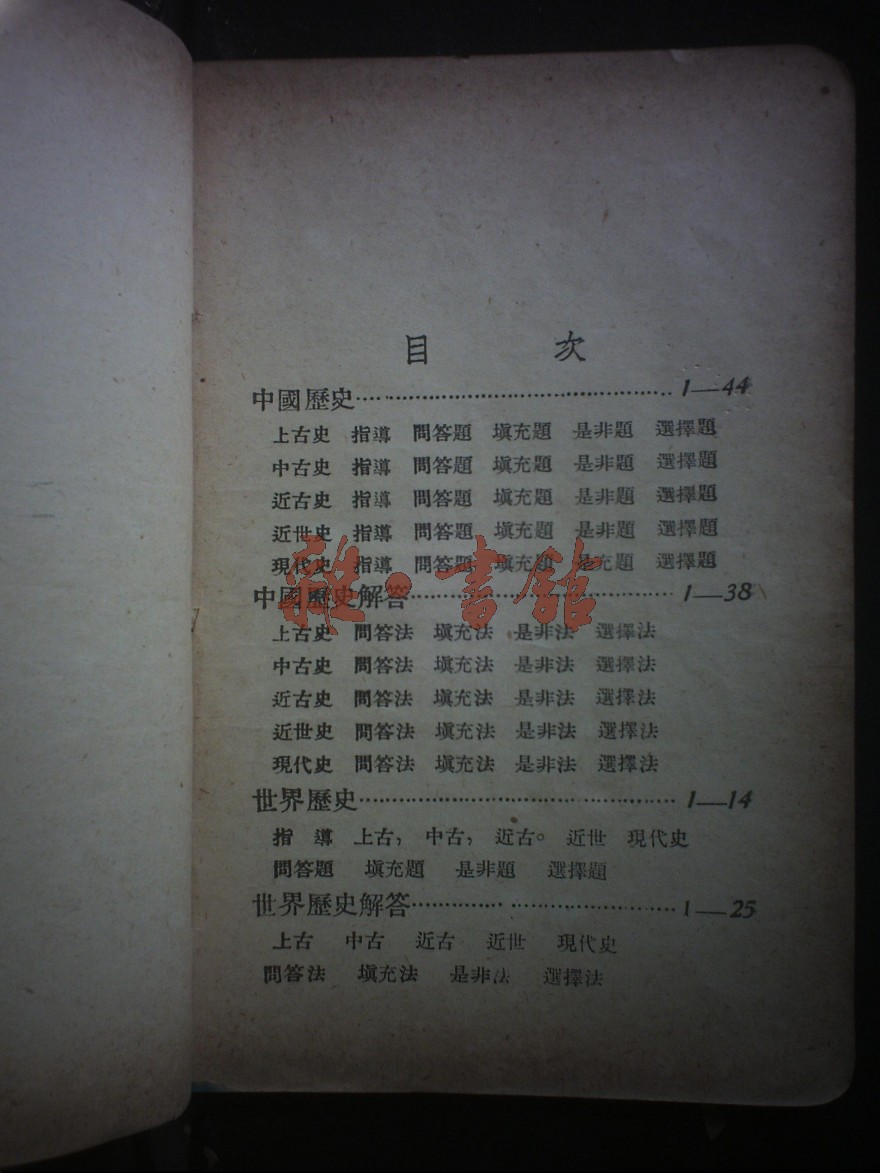 目 次
中國歷史 1—44
上古史 指導 問答題 填充題 是非題 選擇題
中古史 指導 問答題 填充題 是非題 選擇題
近古史 指導 問答題 填充題 是非題 選擇題
近世史 指導 問答題 填充題 是非題 選擇題
現代史 指導 問答題 填充題 是充題 選擇題
雜·書館
中國歷史解答 1—38
上古史 問答法 填充法 是非法 選擇法
中古史 問答法 填充法 是非法 選擇法
近古史 問答法 填充法 是非法 選擇法
近世史 問答法 填充法 是非法 選擇法
現代史 問答法 填充法 是非法 選擇法
世界歷史 1—14
指 導 上古, 中古, 近古。 近世 現代史
問答題 填充題 是非題 選擇題
世界歷史解答 1—25
上古 中古 近古 近世 現代史
問答法 填充法 是非法 選擇法